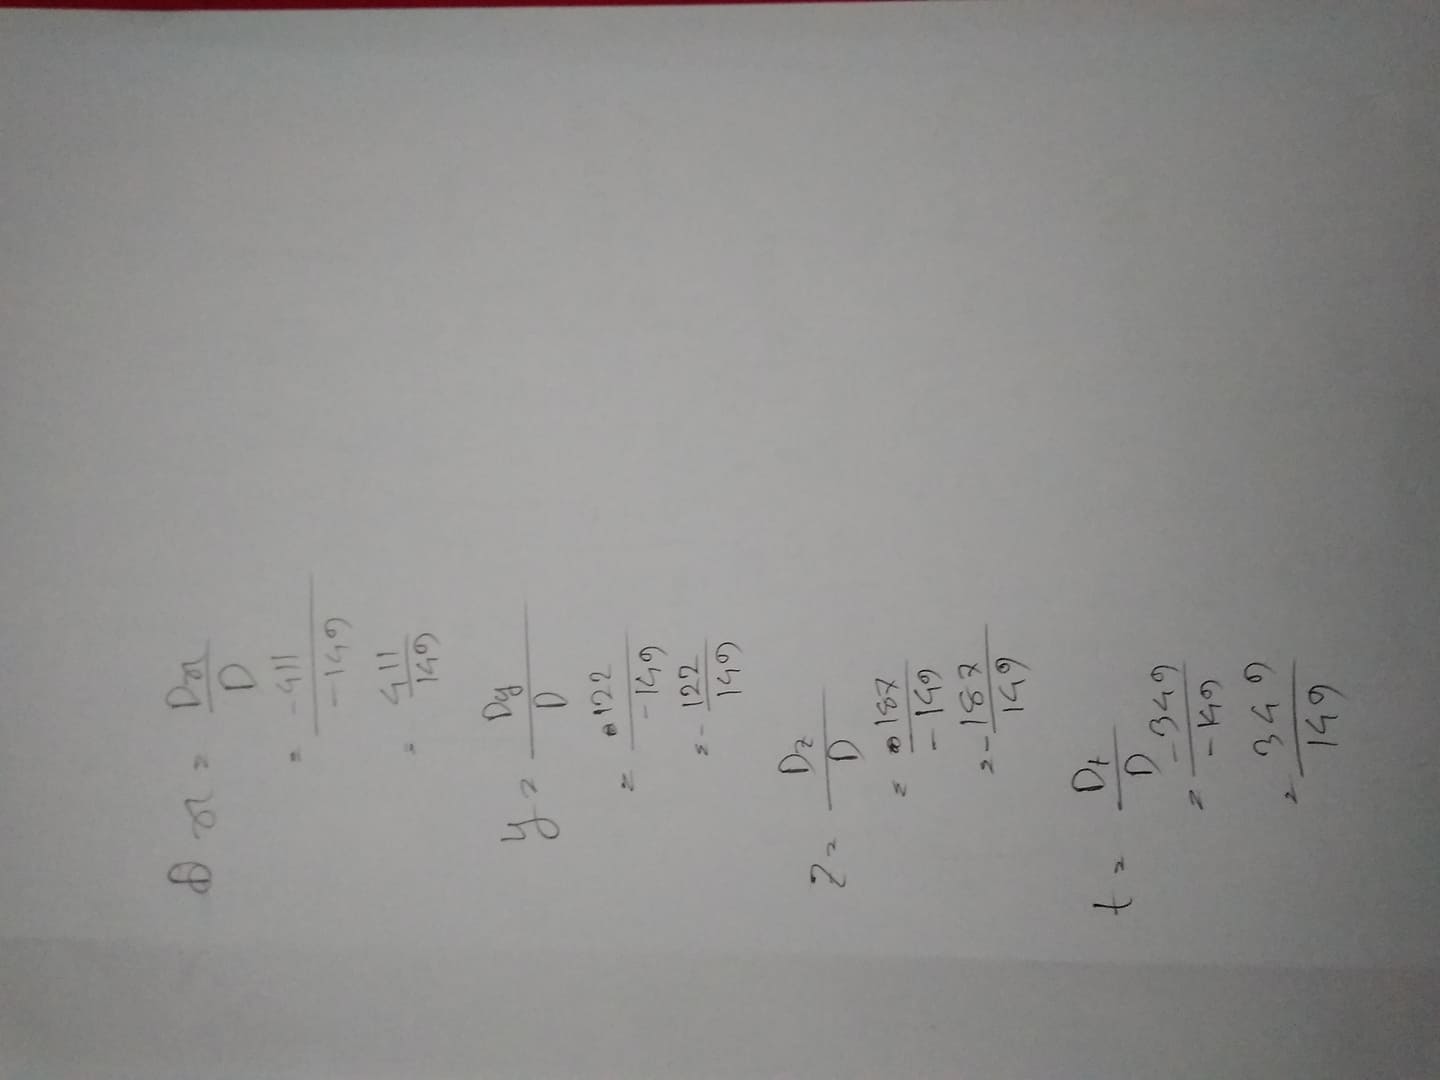 x = Dx
D
= -411
-149
= 411
149
y = Dy
D
= 122
-149
= - 122
149
z = Dz
D
= 187
-149
= - 187
149
t = Dt
D
= -349
-149
= 349
149